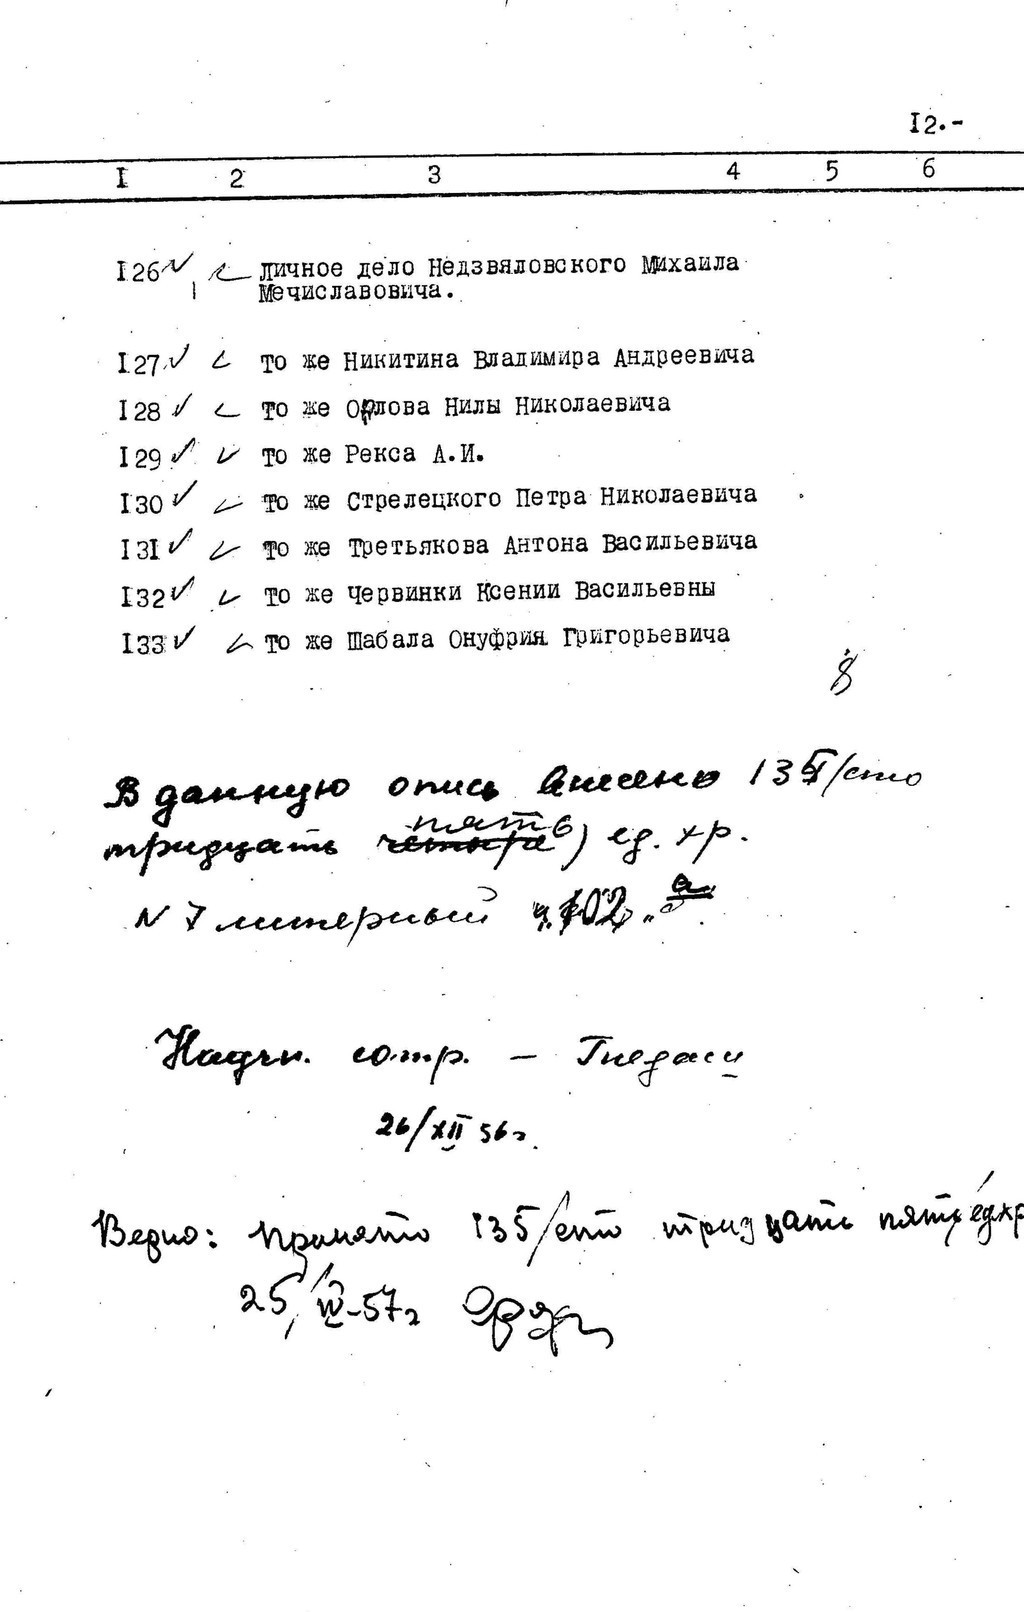 I2.-
I 2 3 4 5 6
I26 Личное дело Недзвяловского Михаила
Мечиславовича.
I27 то же Никитина Владимира Андреевича
I28 то же Орлова Нилы Николаевича
I29 то же Рекса А.И.
I30 то же Стрелецкого Петра Николаевича
I3I то же Третьякова Антона Васильевича
I32 то же Червинки Ксении Васильевны
I33 то же Шабала Онуфрия Григорьевича
8
В данную опись внесено 135/сто
пять
тридцать четыре) ед. хр.
N 7 литерный 102 "а"
Научн. сотр. –
26/XII 56г.
Верно: принято 135/сто тридцать пять/ед хр
25/IV-57г